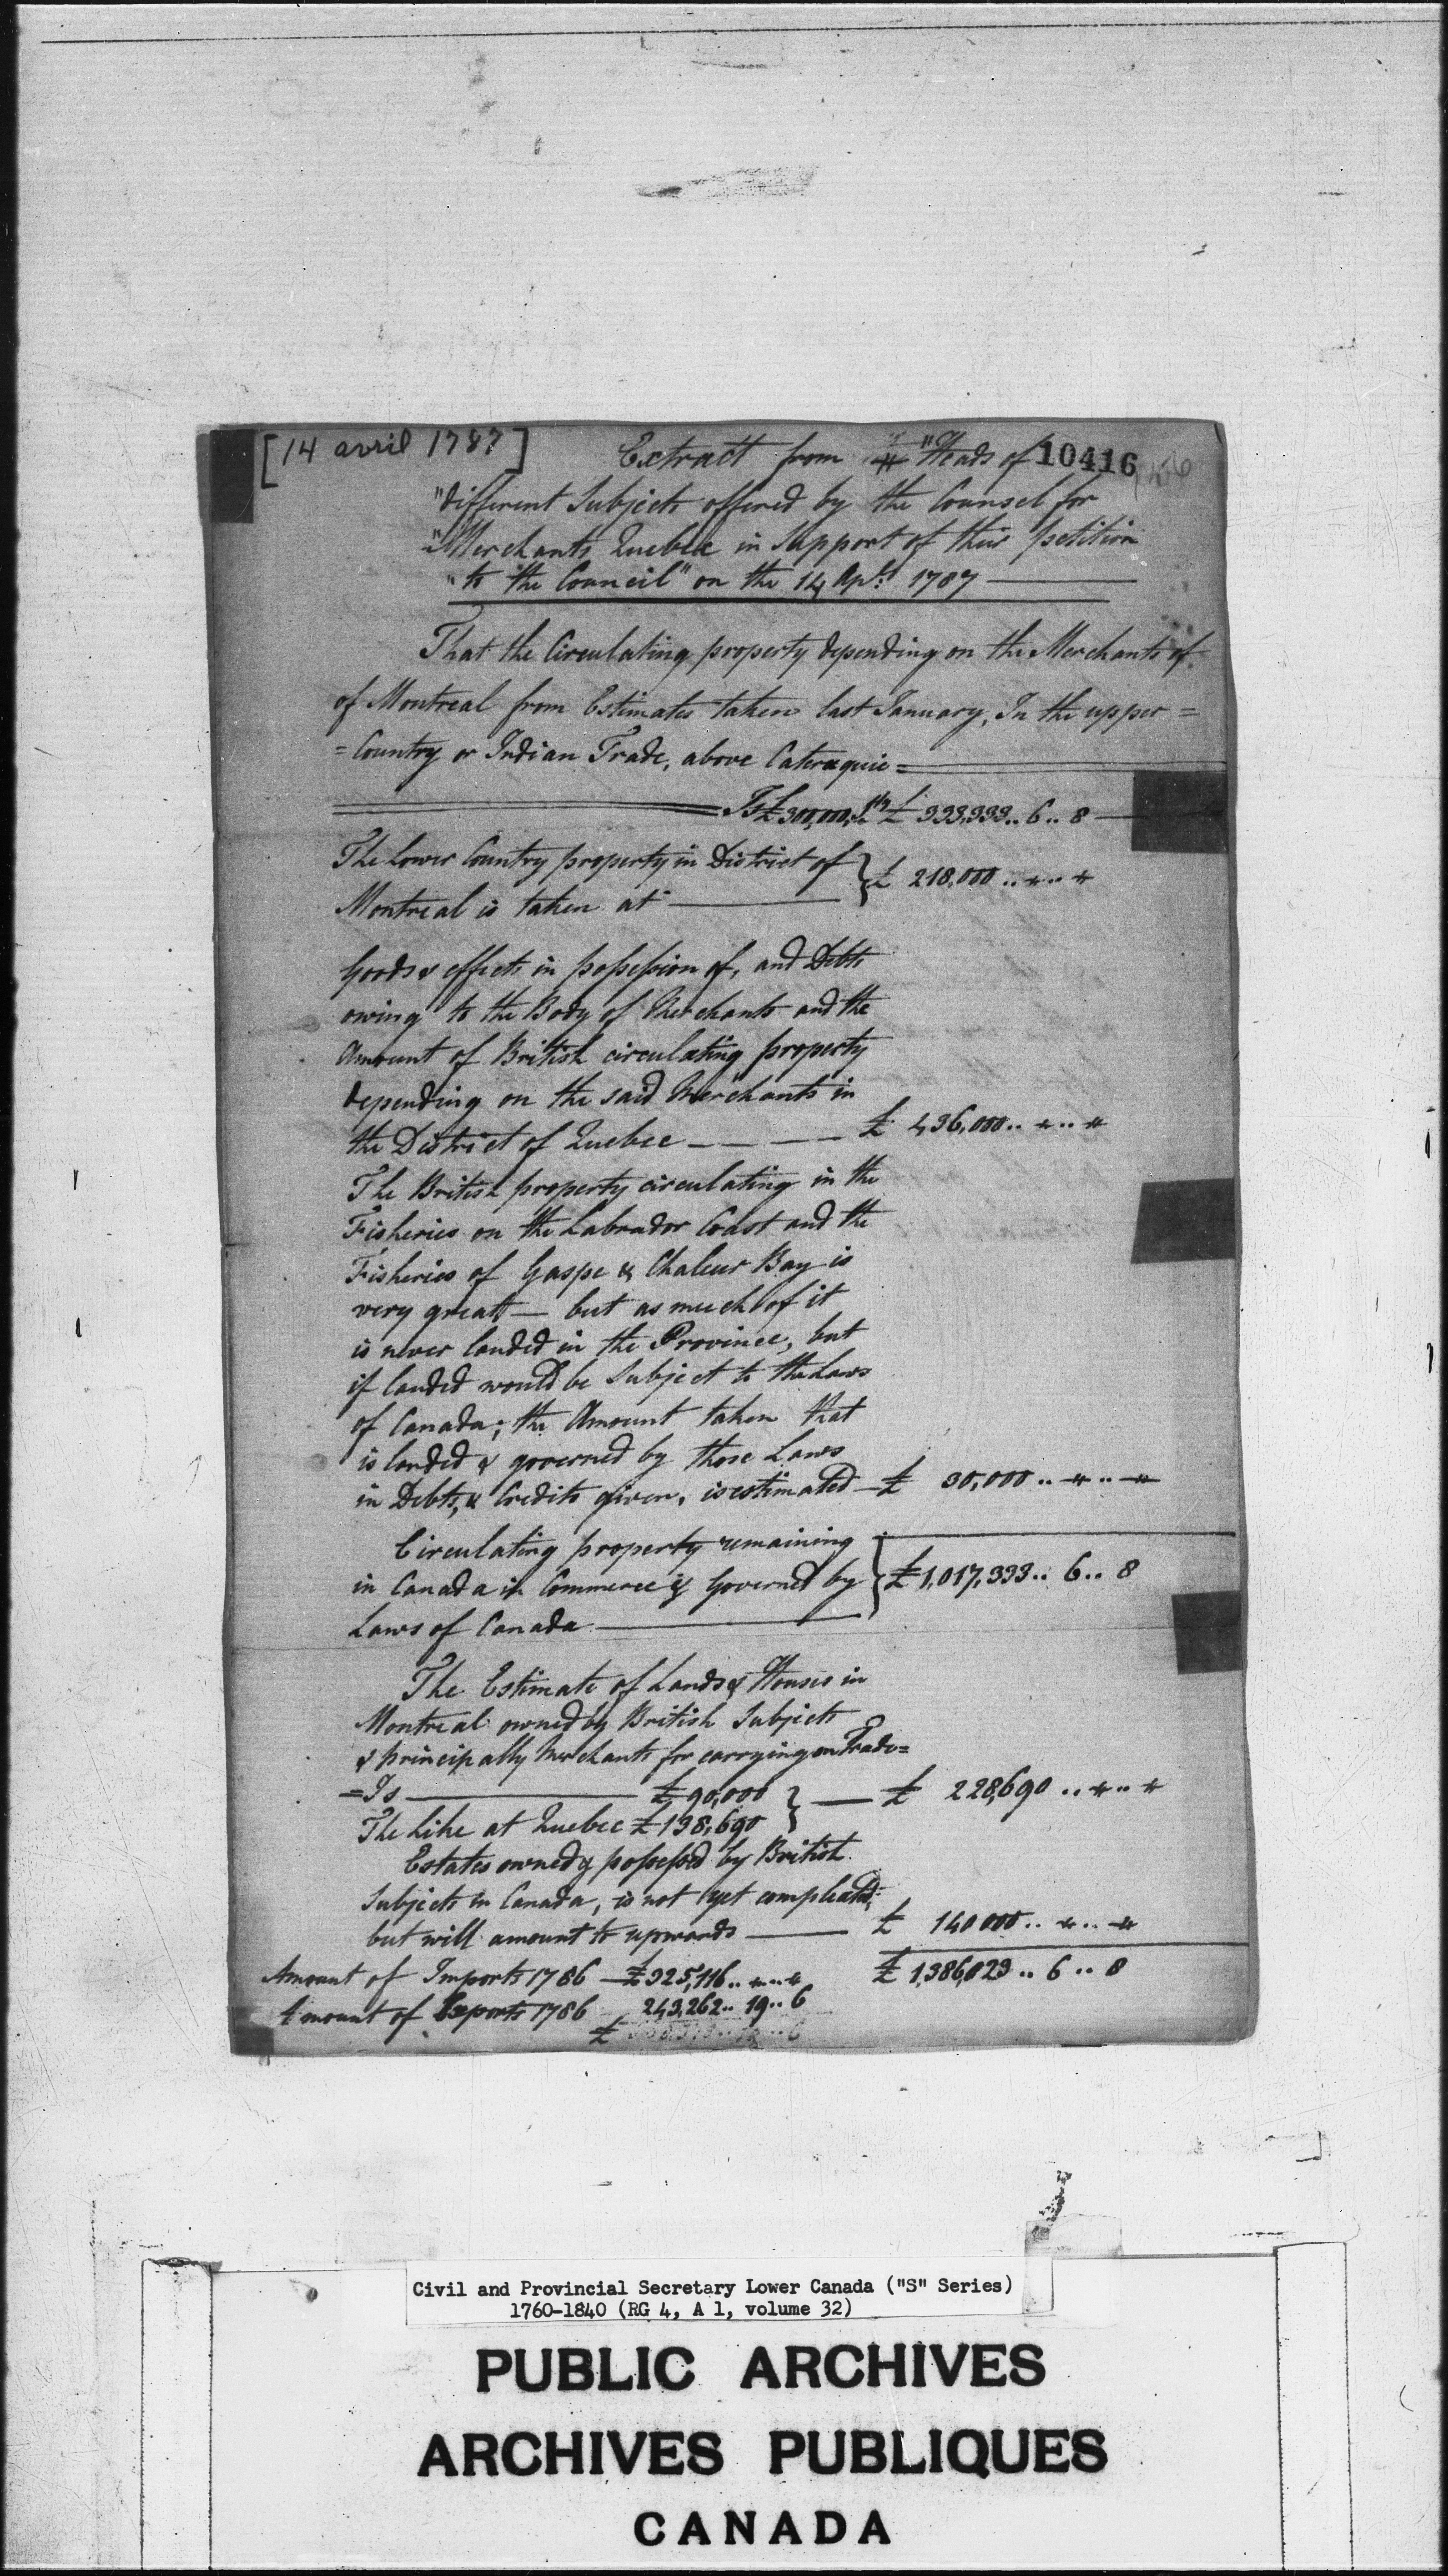 [14 avril 1787]
Extract from "Heads of 10416
"different Subjects offered by the Counsel for
"Merchants Quebec in Support of their petition
"to the Council" on the 14 Apl: 1787
That the Circulating property depending on the Merchants of
of Montreal from Estimates taken last January, In the upper =
= Country or Indian Trade, above Cateraquie =
Is £300,000 £ 333,333.. 6.. 8
The Lower Country property in District of
Montreal is taken at £ 218,000 .. " .. "
Goods & effects in possession of, and Debts
owing to the Body of Merchants and the
Amount of British circulating property
depending on the said Merchants in
the District of Quebec £ 436,000 .. " .. "
The British property circulating in the
Fisheries on the Labrador Coast and the
Fisheries of Gaspe & Chaleur Bay is
very great — but as much of it
is never landed in the Province, but
if landed would be Subject to the Laws
of Canada; the Amount taken that
is landed & governed by those Laws
in Debts, & Credits given, is estimated — £ 30,000 .. " .. "
Circulating property remaining
in Canada in Commerce & Governed by £ 1,017,333.. 6.. 8
Laws of Canada
The Estimate of Lands & Houses in
Montreal owned by British Subjects
& principally Merchants for carrying on Trade =
= Is £ 90,000 — £ 228,690 .. " .. "
The Like at Quebec £ 138,690
Estates owned & possessed by British
Subjects in Canada, is not yet compleated;
but will amount to upwards £ 140000 .. " .. "
Amount of Imports 1786 — £325,116 .. " .. " £ 1,386,023 .. 6 .. 8
Amount of Exports 1786 243,262 .. 19 .. 6
£
Civil and Provincial Secretary Lower Canada ("S" Series)
1760-1840 (RG 4, A 1, volume 32)
PUBLIC ARCHIVES
ARCHIVES PUBLIQUES
CANADA